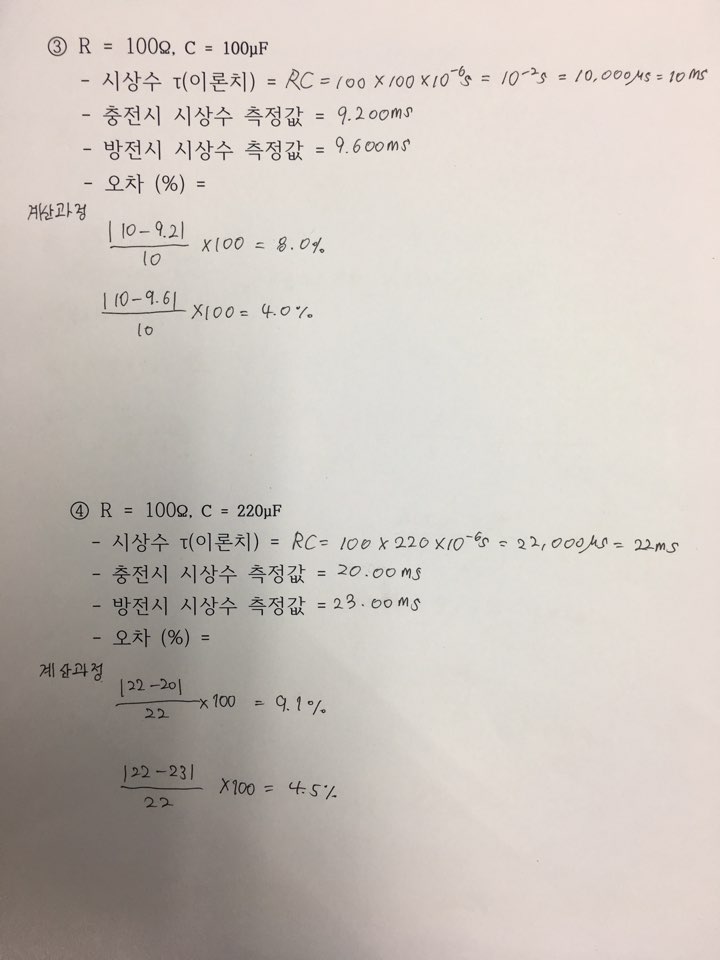 ③ R = 100Ω, C = 100μF
- 시상수 τ(이론치) = RC = 100 × 100 × 10⁻⁶s = 10⁻²s = 10,000μs = 10ms
- 충전시 시상수 측정값 = 9.200ms
- 방전시 시상수 측정값 = 9.600ms
- 오차 (%) =
계산과정
|10-9.2| / 10 × 100 = 8.0%
|10-9.6| / 10 × 100 = 4.0%
④ R = 100Ω, C = 220μF
- 시상수 τ(이론치) = RC = 100 × 220 × 10⁻⁶s = 22,000μs = 22ms
- 충전시 시상수 측정값 = 20.00ms
- 방전시 시상수 측정값 = 23.00ms
- 오차 (%) =
계산과정
|22-20| / 22 × 100 = 9.1%
|22-23| / 22 × 100 = 4.5%